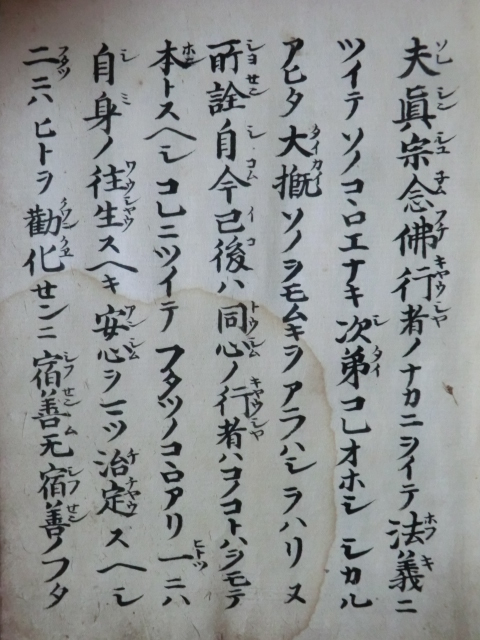 夫眞宗念佛行者ノナカニヲイテ法義ニ
ツイテソノコヽロエナキ次第コレオホシシカル
アヒタ大概ソノヲモムキヲアラハシヲハリヌ
所詮自今已後ハ同心ノ行者ハコノコトハヲモテ
本トスヘシコレニツイテフタツノコヽロアリ一ニハ
自身ノ往生スヘキ安心ヲマツ治定スヘシ
二ニハヒトヲ勸化センニ宿善无宿善ノフタ